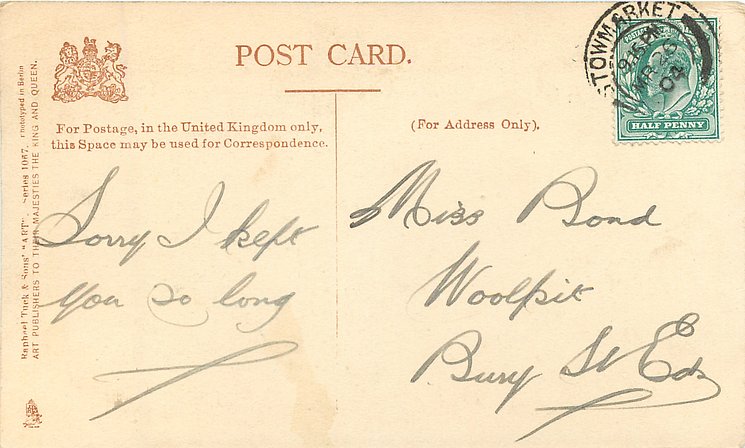 POST CARD.
STOWMARKET
9.15 PM
MR 26
04
HALF PENNY
For Postage, in the United Kingdom only,
this Space may be used for Correspondence.
(For Address Only).
Sorry I kept
you so long
Miss Bond
Woolpit
Bury St Eds
Raphael Tuck & Sons' "ART" Series 1067. Phototyped in Berlin
ART PUBLISHERS TO THEIR MAJESTIES THE KING AND QUEEN.